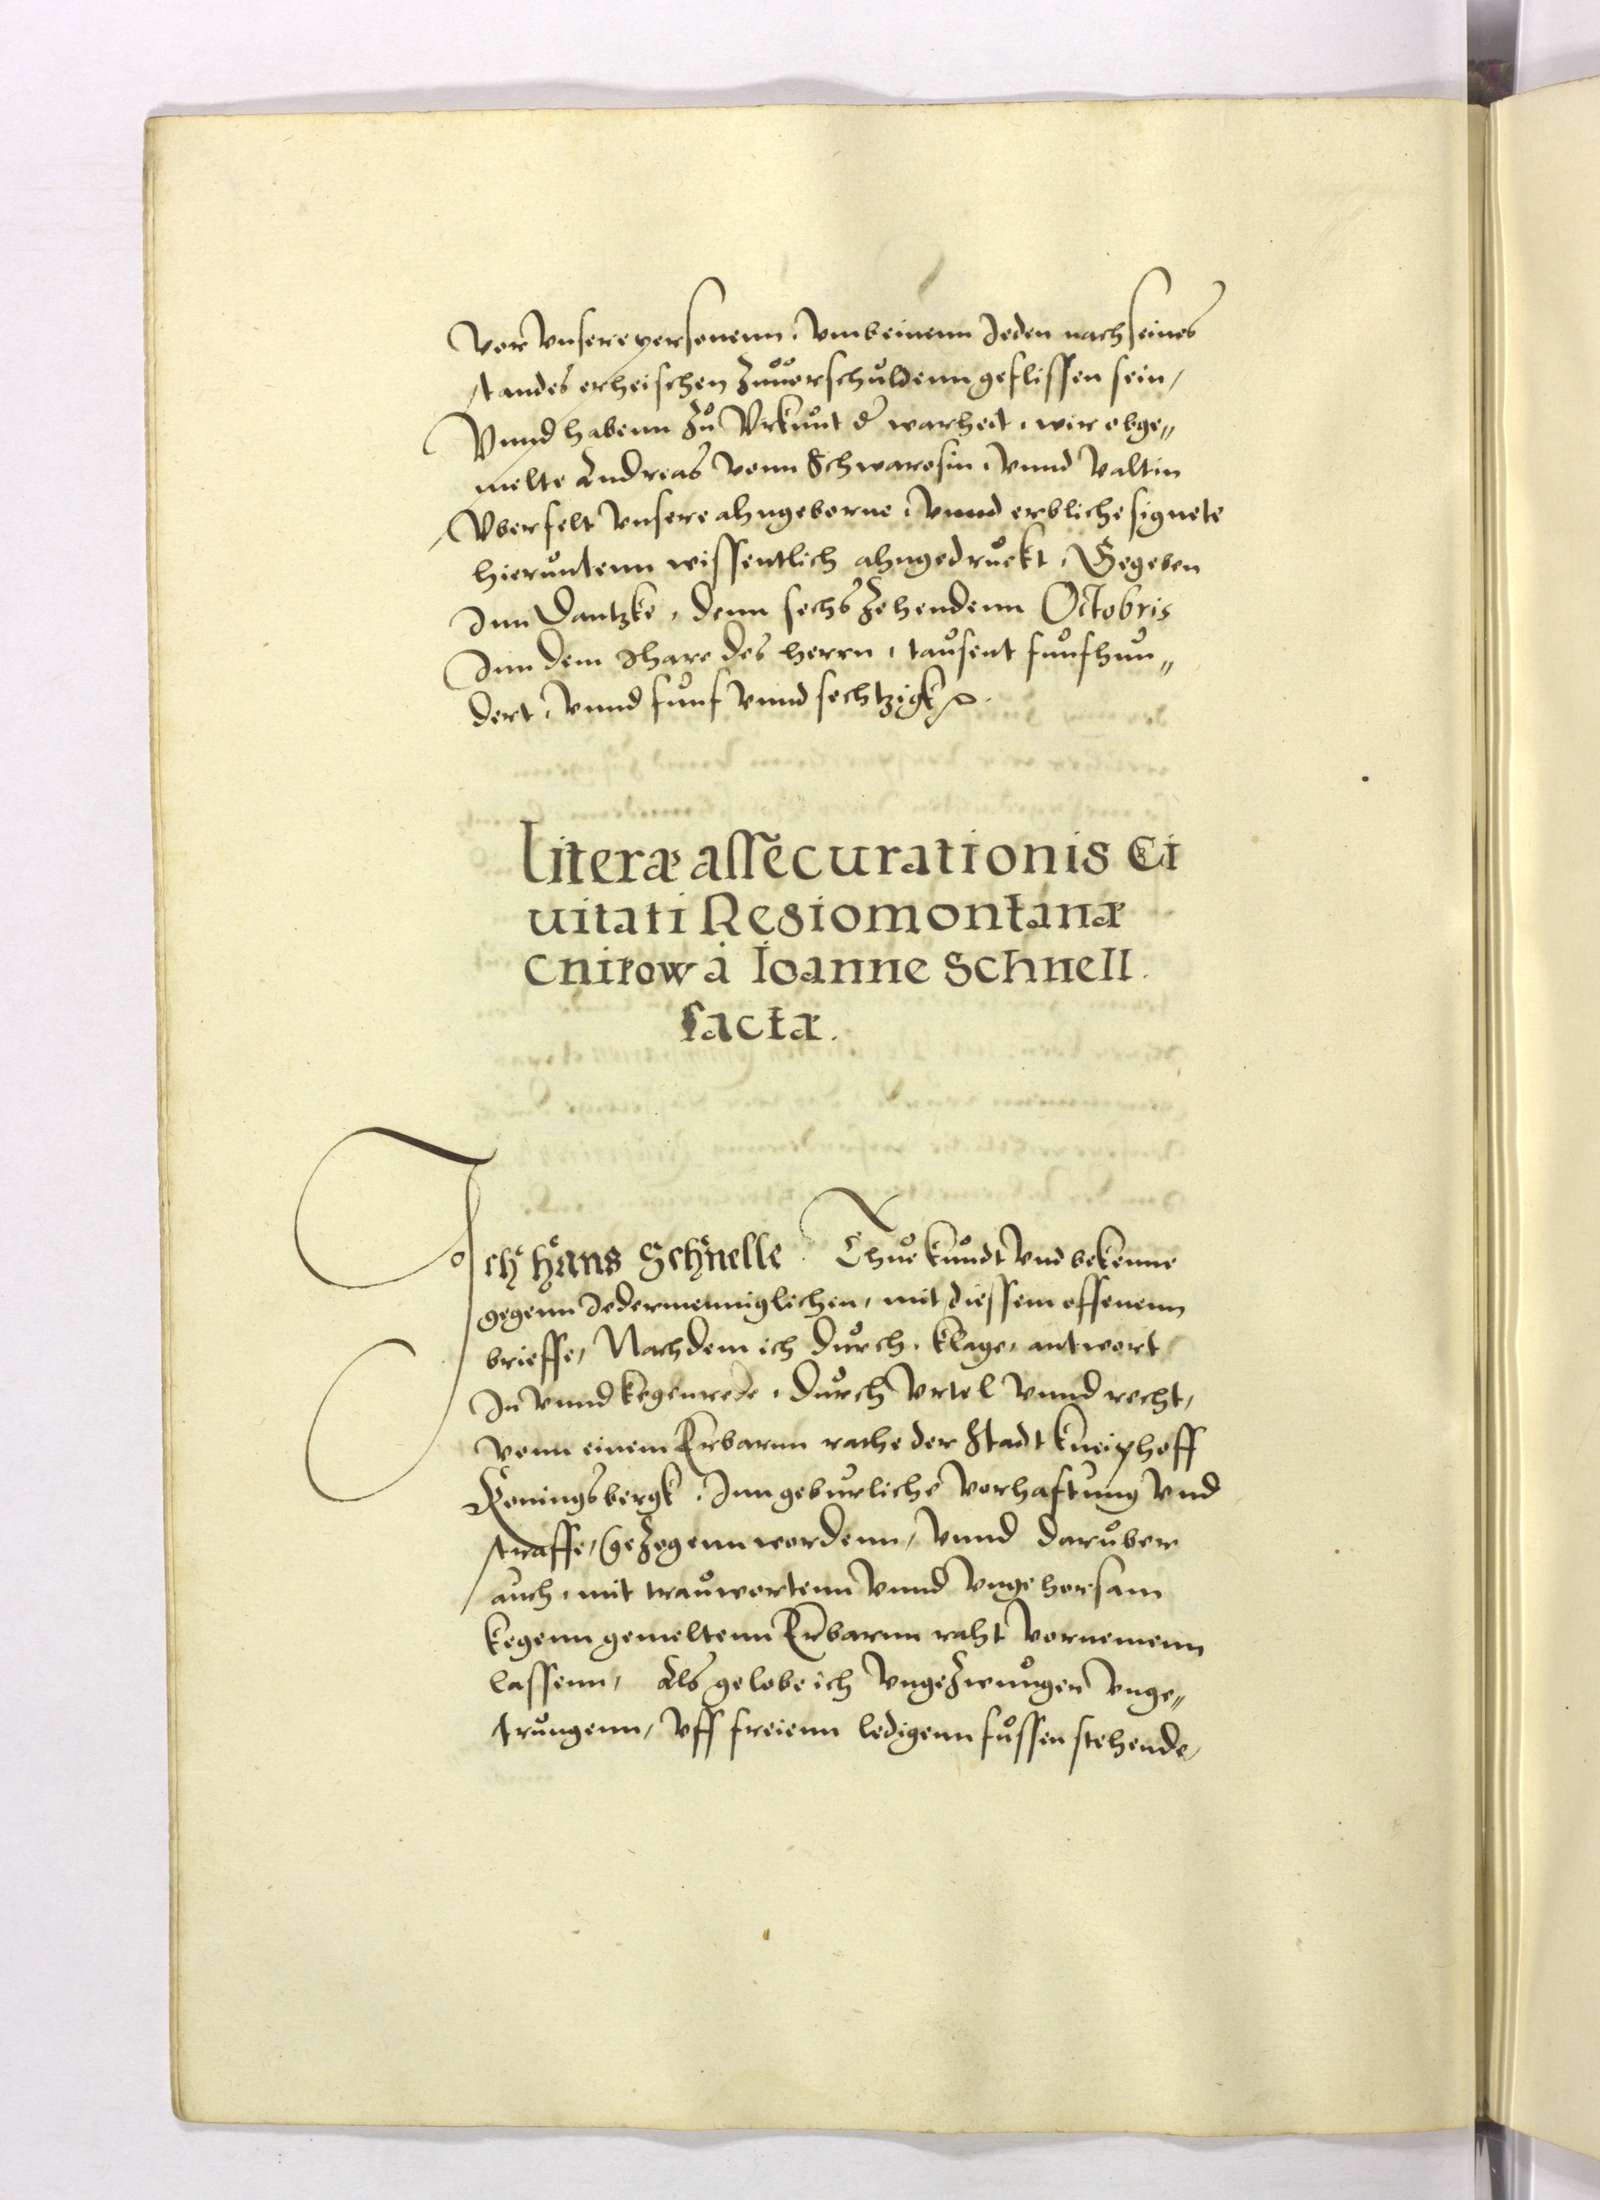 vor vnsere personenn, vmb einenn Jeden nach seines
standes erheischen Zuuorschuldenn geflissen sein,
Vnnd habenn Zu Vrkunt der warheit, wir obge„
melte Andreas vonn Schwarosin, vnnd Valtin
Vberfelt vnsere ahngeborne, vnnd erbliche signete
hieruntenn wissentlich ahngedruckt, Gegeben
Inn Dantzke, denn sechsZehendenn Octobris
Inn dem Ihare des herrn, tausent funfhun„
dert, vnnd funf vnnd sechtzigk
Literæ assecurationis Ci
uitati Regiomontanæ
Cnipow à Ioanne Schnell.
factæ.
Ich Hans Schnelle Thue kundt vnd bekenne
gegenn Jedermenniglichen, mit diessem offenenn
brieffe, Nachdem ich durch, klage, antwort
In vnnd kegenrede, durch vrtel vnnd recht,
vonn einem Erbarnn rathe der Stadt kneiphoff
Konningsbergk, Inn geburliche vorhaftung vnd
straffe, geZogenn wordenn, vnnd daruber
auch, mit trauwortenn vnnd vngehorsam
kegenn gemeltenn Erbarnn raht vornemenn
lassenn, Als gelobe ich vngeZwungen vnge„
trungenn, vff freienn ledigenn fussen stehende,